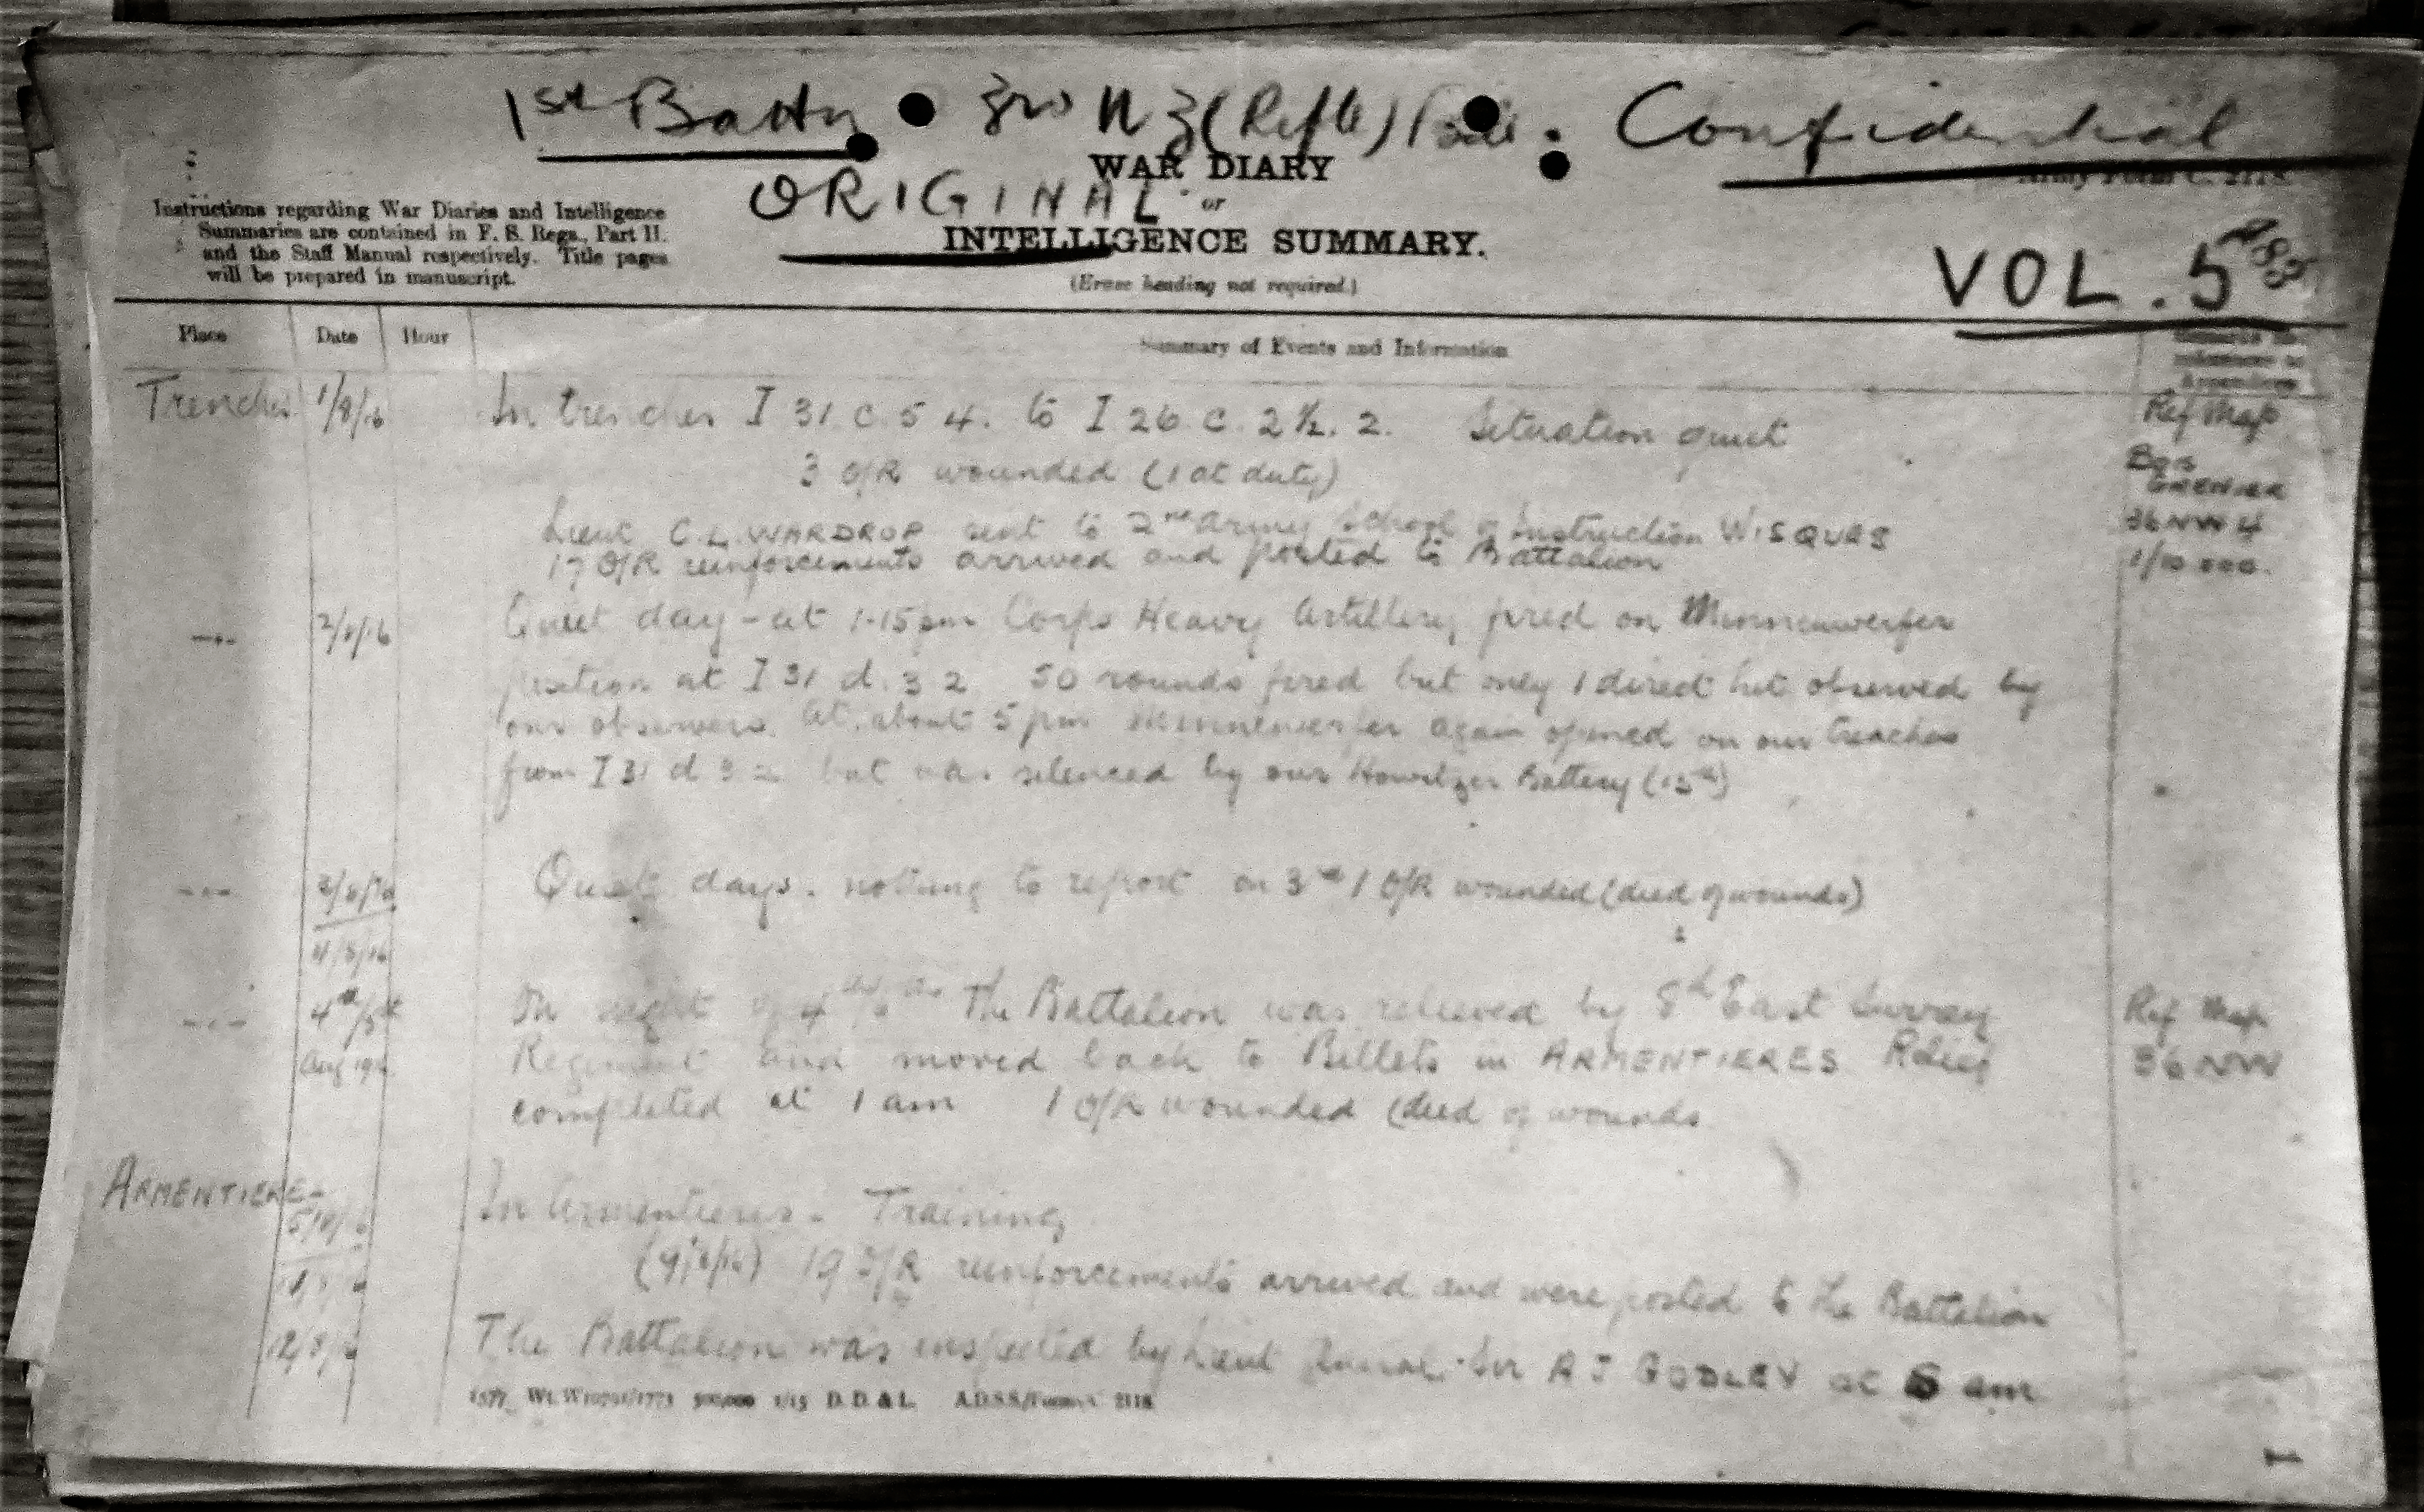 1st Battn 3rd N Z (Rifle) Bde. Confidential
WAR DIARY
Army Form C. 2118.
ORIGINAL or
Instructions regarding War Diaries and Intelligence
Summaries are contained in F. S. Regs., Part II.
and the Staff Manual respectively. Title pages
will be prepared in manuscript.
INTELLIGENCE SUMMARY.
(Erase heading not required.)
VOL. 5
Place Date Hour Summary of Events and Information
Remarks and
references to
Appendices
Trenches 1/8/16 In trenches I 31 c. 5 4. to I 26 c. 2½. 2. Situation quiet Ref Map
3 O/R wounded (1 at duty) BOIS GRENIER
Lieut C.L. WARDROP sent to 2nd Army School of Instruction WISQUES 36 NW 4
17 O/R reinforcements arrived and posted to Battalion 1/10.000.
2/8/16 Quiet day - at 1-15 pm Corps Heavy Artillery fired on Minnenwerfer
position at I 31 d. 3 2 50 rounds fired but only 1 direct hit observed by
our observers. At about 5 pm Minnenwerfer again opened on our trenches
from I 31 d 3 2 but was silenced by our Howitzer Battery
3/8/16 Quiet days. nothing to report on 3rd 1 O/R wounded (died of wounds)
4/8/16
4th/5th On night of 4th/5th The Battalion was relieved by 8th East Surrey Ref Map
Aug 1916 Regiment and moved back to Billets in ARMENTIERES Relief 36 NW
completed at 1 am 1 O/R wounded (died of wounds
ARMENTIERES
5/8/16 In Armentieres - Training
(9/8/16) 19 O/R reinforcements arrived and were posted to the Battalion
12/8/16 The Battalion was inspected by Lieut General Sir A J GODLEY at am
D. D. & L. A.D.S.S./Forms/C. 2118.
1